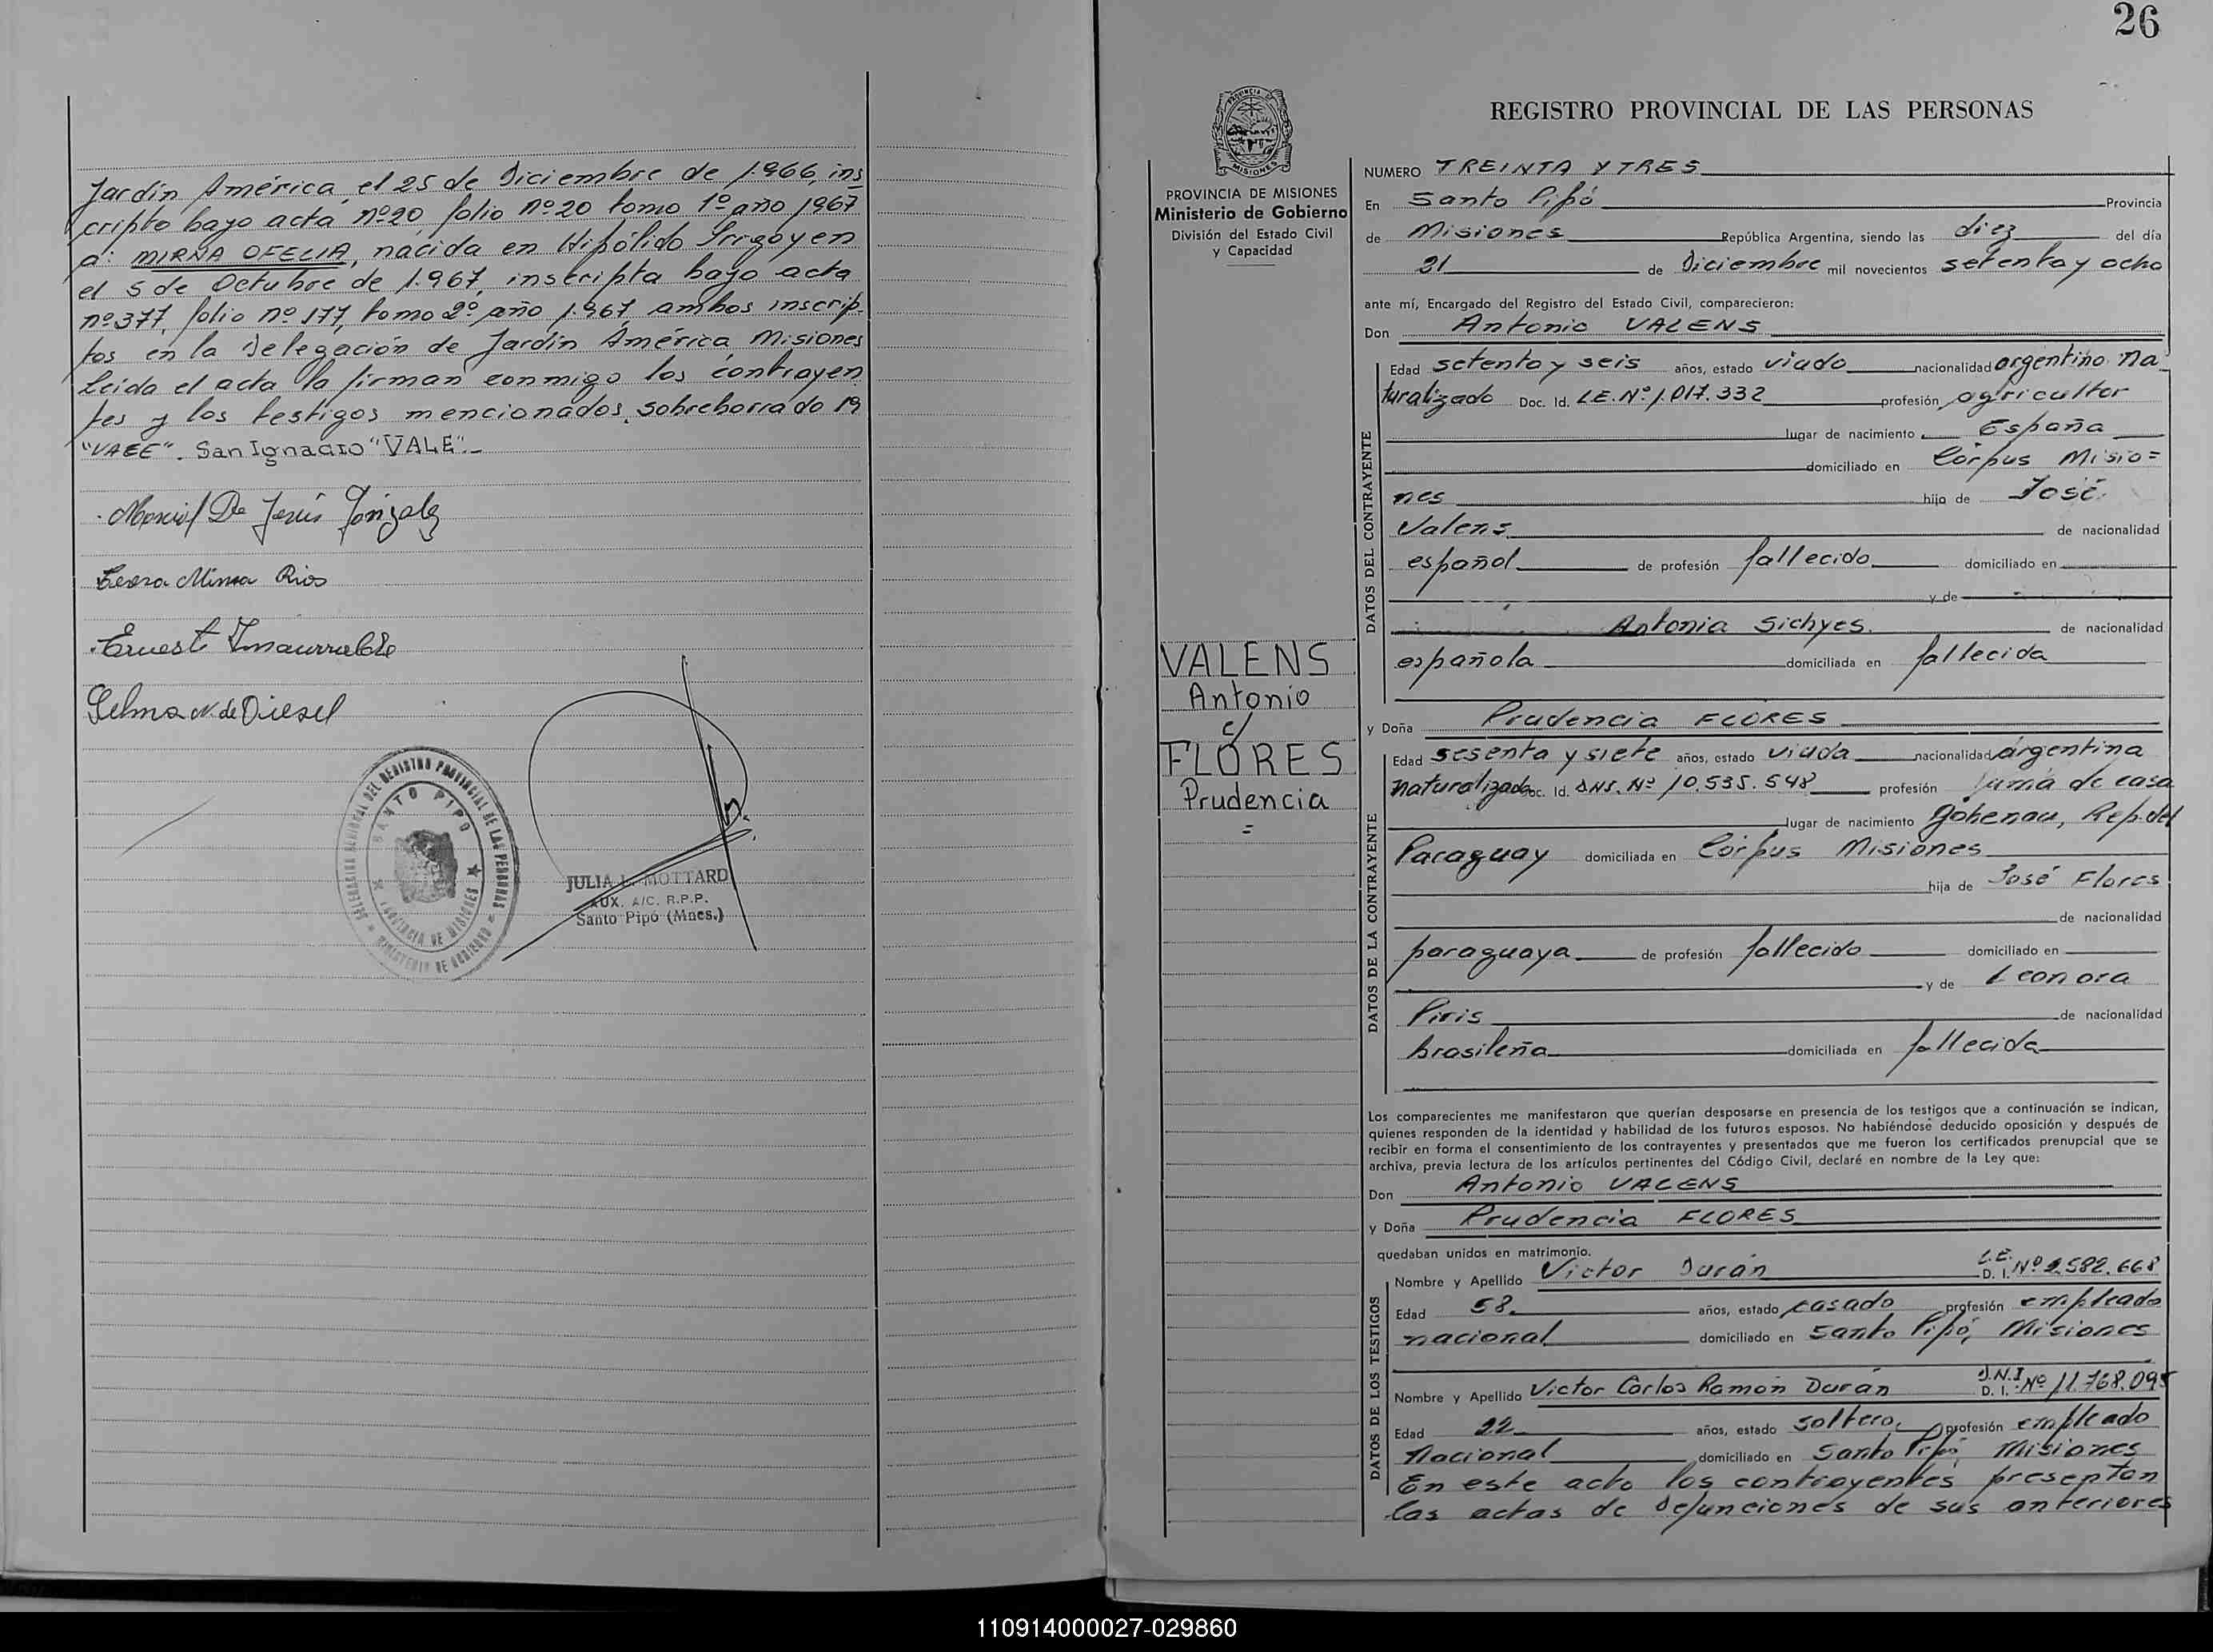 Jardín América, el 25 de Diciembre de 1.966, ins
cripto bajo acta nº 20 folio nº 20 tomo 1º año 1967
a: MIRNA OFELIA, nacida en Hipólido Irrigoyen
el 5 de Octubre de 1.967, inscripta bajo acta
nº 377, folio nº 177, tomo 2º año 1.967, ambos inscrip-
tos en la Delegación de Jardín América, Misiones
Leida el acta la firman conmigo los contrayen
tes y los testigos mencionados. Sobreborrado 19
"VALE". San Ignacio "VALE".-
Marcial De Jesús Gonzalez
Mirna Rios
Ernest
Selma N. de Diesel
DELEGACION SECCIONAL DEL REGISTRO PROVINCIAL DE LAS PERSONAS
SANTO PIPO
PROVINCIA DE MISIONES
MINISTERIO DE GOBIERNO
JULIA L. MOTTARD
AUX. A/C. R.P.P.
Santo Pipó (Mnes.)
26
PROVINCIA DE MISIONES
Ministerio de Gobierno
División del Estado Civil
y Capacidad
VALENS
Antonio
c/
FLORES
Prudencia
=
REGISTRO PROVINCIAL DE LAS PERSONAS
NUMERO TREINTA Y TRES
En Santo Pipó Provincia
de Misiones República Argentina, siendo las diez del día
21 de Diciembre mil novecientos setenta y ocho
ante mí, Encargado del Registro del Estado Civil, comparecieron:
Don Antonio VALENS
DATOS DEL CONTRAYENTE
Edad setenta y seis años, estado viudo nacionalidad argentino na
turalizado Doc. Id. L.E. Nº 1.017.332 profesión agricultor
lugar de nacimiento España
domiciliado en Corpus Misio=
nes hijo de José
Valens de nacionalidad
español de profesión fallecido domiciliado en
y de
Antonia Sichyes. de nacionalidad
española domiciliada en fallecida
y Doña Prudencia FLORES
DATOS DE LA CONTRAYENTE
Edad sesenta y siete años, estado viuda nacionalidad argentina
naturalizada Doc. Id. DNI. Nº 10.535.548 profesión ama de casa
lugar de nacimiento Gohenau, Rep. del
Paraguay domiciliada en Corpus Misiones
hija de José Flores
de nacionalidad
paraguaya de profesión fallecido domiciliado en
y de Leonora
Piris de nacionalidad
brasileña domiciliada en fallecida
Los comparecientes me manifestaron que querían desposarse en presencia de los testigos que a continuación se indican,
quienes responden de la identidad y habilidad de los futuros esposos. No habiéndose deducido oposición y después de
recibir en forma el consentimiento de los contrayentes y presentados que me fueron los certificados prenupcial que se
archiva, previa lectura de los artículos pertinentes del Código Civil, declaré en nombre de la Ley que:
Don Antonio VALENS
y Doña Prudencia FLORES
quedaban unidos en matrimonio.
DATOS DE LOS TESTIGOS
Nombre y Apellido Victor Durán L.E. D. I. Nº 2.582.668
Edad 58. años, estado casado profesión empleado
nacional domiciliado en Santo Pipó, Misiones
Nombre y Apellido Victor Carlos Ramón Durán D.N.I. D. I. Nº 11.768.095
Edad 22 años, estado soltero, profesión empleado
Nacional domiciliado en Santo Pipó, Misiones
En este acto los contrayentes presentan
las actas de defunciones de sus anteriores
110914000027-029860